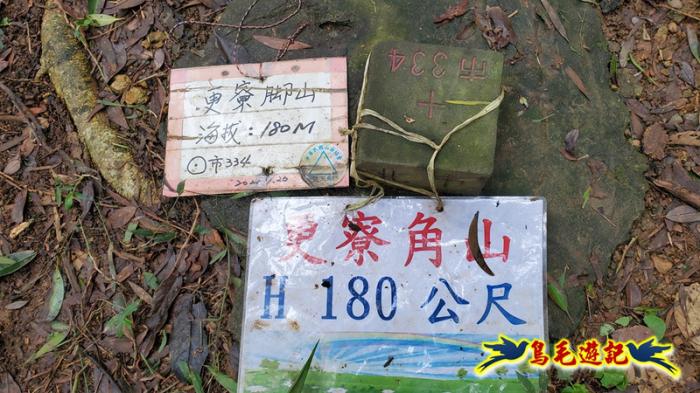 更寮脚山
海拔:180M
⊙市334
2021.4.20
市334
十
更寮角山
H 180 公尺
鳥毛遊記